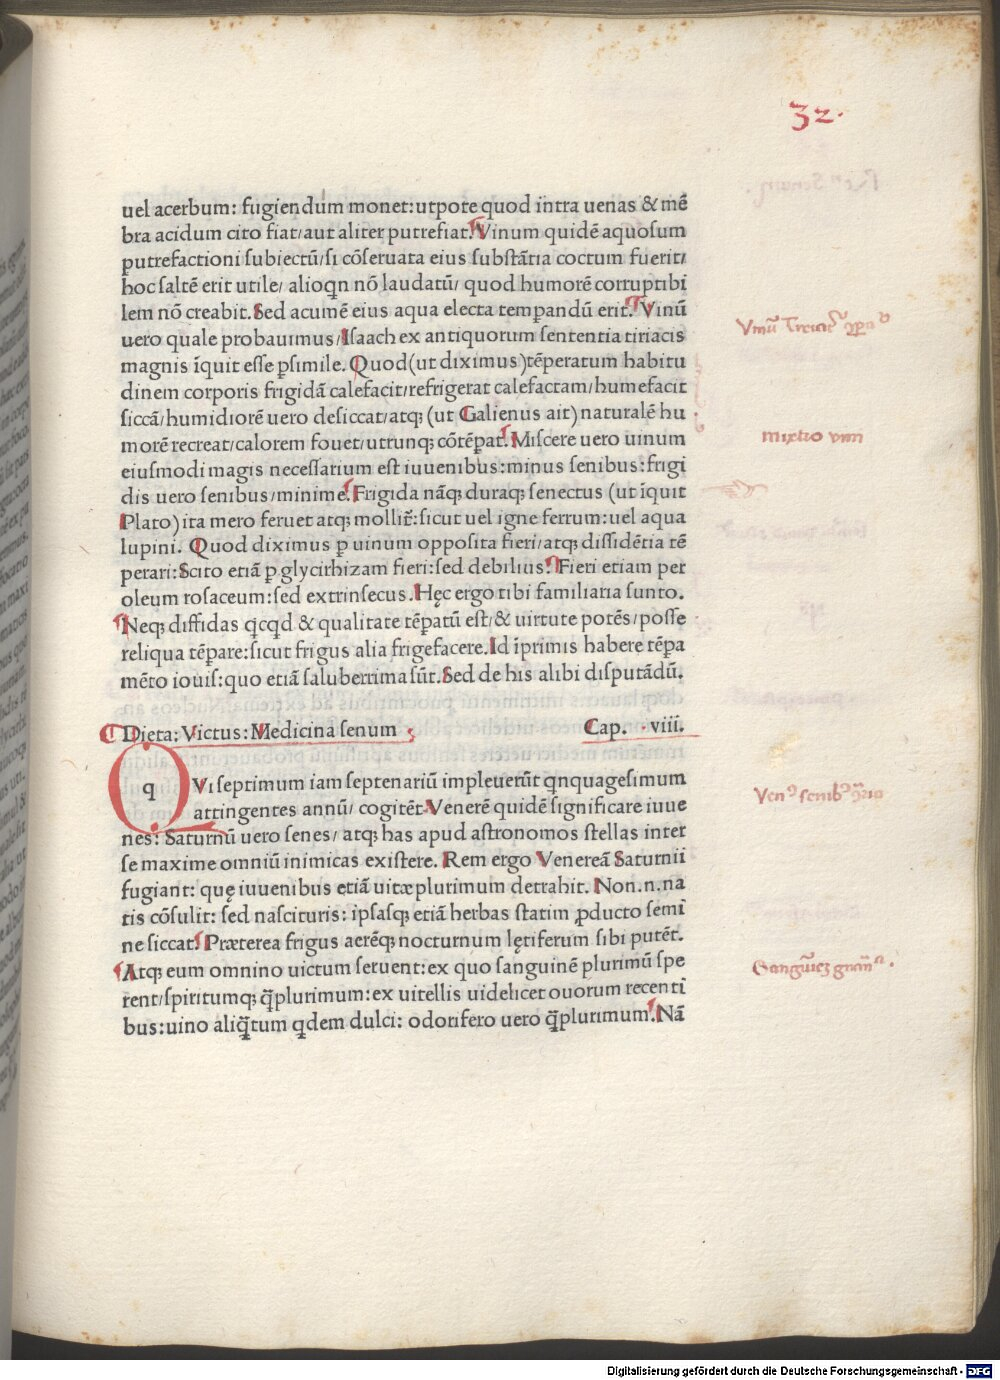 32.
uel acerbum: fugiendum monet:utpote quod intra uenas & mē
bra acidum cito fiat/aut aliter putrefiat. Vinum quidē aquosum
putrefactioni subiectū/si cōseruata eius substātia coctum fuerit/
hoc saltē erit utile/ alioqn nō laudatū/ quod humorē corruptibi
lem nō creabit. Sed acumē eius aqua electa temperandū erit. Vinū
uero quale probauimus/Isaach ex antiquorum sententia tiriacis
magnis īquit esse ꝑsimile. Quod(ut diximus)tēperatum habitu
dinem corporis frigidā calefacit/refrigerat calefactam/humefacit
siccā/humidiorē uero desiccat/atqꝫ (ut Galienus ait) naturalē hu
morē recreat/calorem fouet/utrunqꝫ cōtēꝑat. Miscere uero uinum
eiusmodi magis necessarium est iuuenibus:minus senibus:frigi
dis uero senibus/minime. Frigida nāqꝫ duraqꝫ senectus (ut īquit
Plato) ita mero feruet atqꝫ mollit᷑: sicut uel igne ferrum: uel aqua
lupini. Quod diximus ꝑ uinum opposita fieri/atqꝫ dissidētia tē
perari: Scito etiā ꝑ glycirhizam fieri: sed debilius. Fieri etiam per
oleum rosaceum: sed extrinsecus. Hęc ergo tibi familiaria sunto.
Neqꝫ diffidas qcqd & qualitate tēꝑatū est/& uirtute potēs/posse
reliqua tēꝑare: sicut frigus alia frigefacere. Id īprimis habere tēꝑa
mēto iouis: quo etiā saluberrima sūt. Sed de his alibi disputādū.
Dieta: Victus: Medicina senum Cap. viii.
qVi septimum iam septenariū impleuerūt qnquagesimum
attingentes annū/ cogitēt Venerē quidē significare iuue
nes: Saturnū uero senes/ atqꝫ has apud astronomos stellas inter
se maxime omniū inimicas existere. Rem ergo Venereā Saturnii
fugiant: quę iuuenibus etiā uitæ plurimum detrahit. Non.n.na
tis cōsulit: sed nascituris: ipsasqꝫ etiā herbas statim ꝓducto semi
ne siccat. Præterea frigus aerēqꝫ nocturnum lętiferum sibi putēt.
Atqꝫ eum omnino uictum seruent: ex quo sanguinē plurimū spe
rent/spiritumqꝫ q̄plurimum: ex uitellis uidelicet ouorum recenti
bus: uino aliq̄tum qdem dulci: odorifero uero q̄plurimum. Nā
mixtio vini
Digitalisierung gefördert durch die Deutsche Forschungsgemeinschaft - DFG